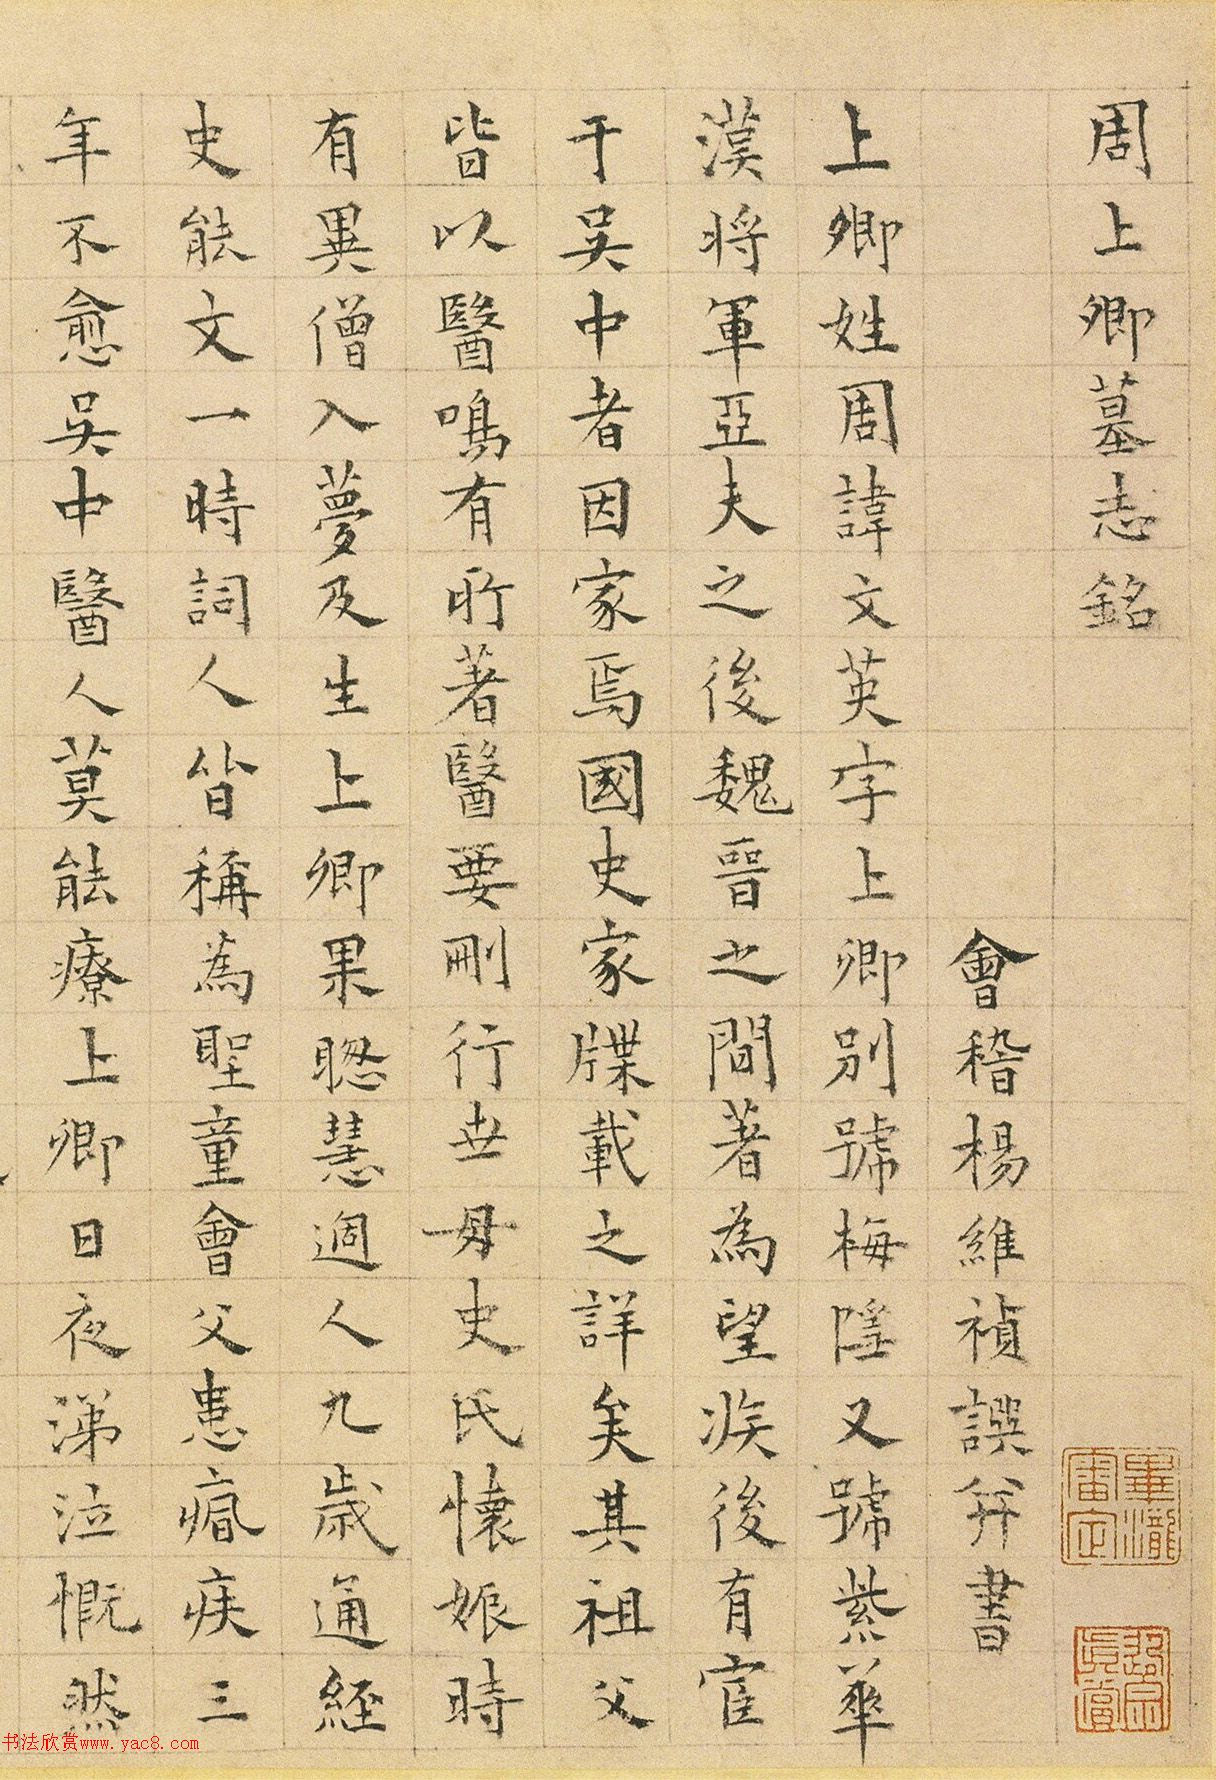 周上卿墓志銘
會稽楊維禎譔并書
上卿姓周諱文英字上卿別號梅隱又號紫華
漢將軍亞夫之後魏晉之間著為望族後有宦
于吳中者因家焉國史家牒載之詳矣其祖父
皆以醫鳴有所著醫要刪行世母史氏懷娠時
有異僧入夢及生上卿果聰慧過人九歲通經
史能文一時詞人皆稱為聖童會父患痟疾三
年不愈吳中醫人莫能療上卿日夜涕泣慨然
畢瀧審定
书法欣赏www.yac8.com